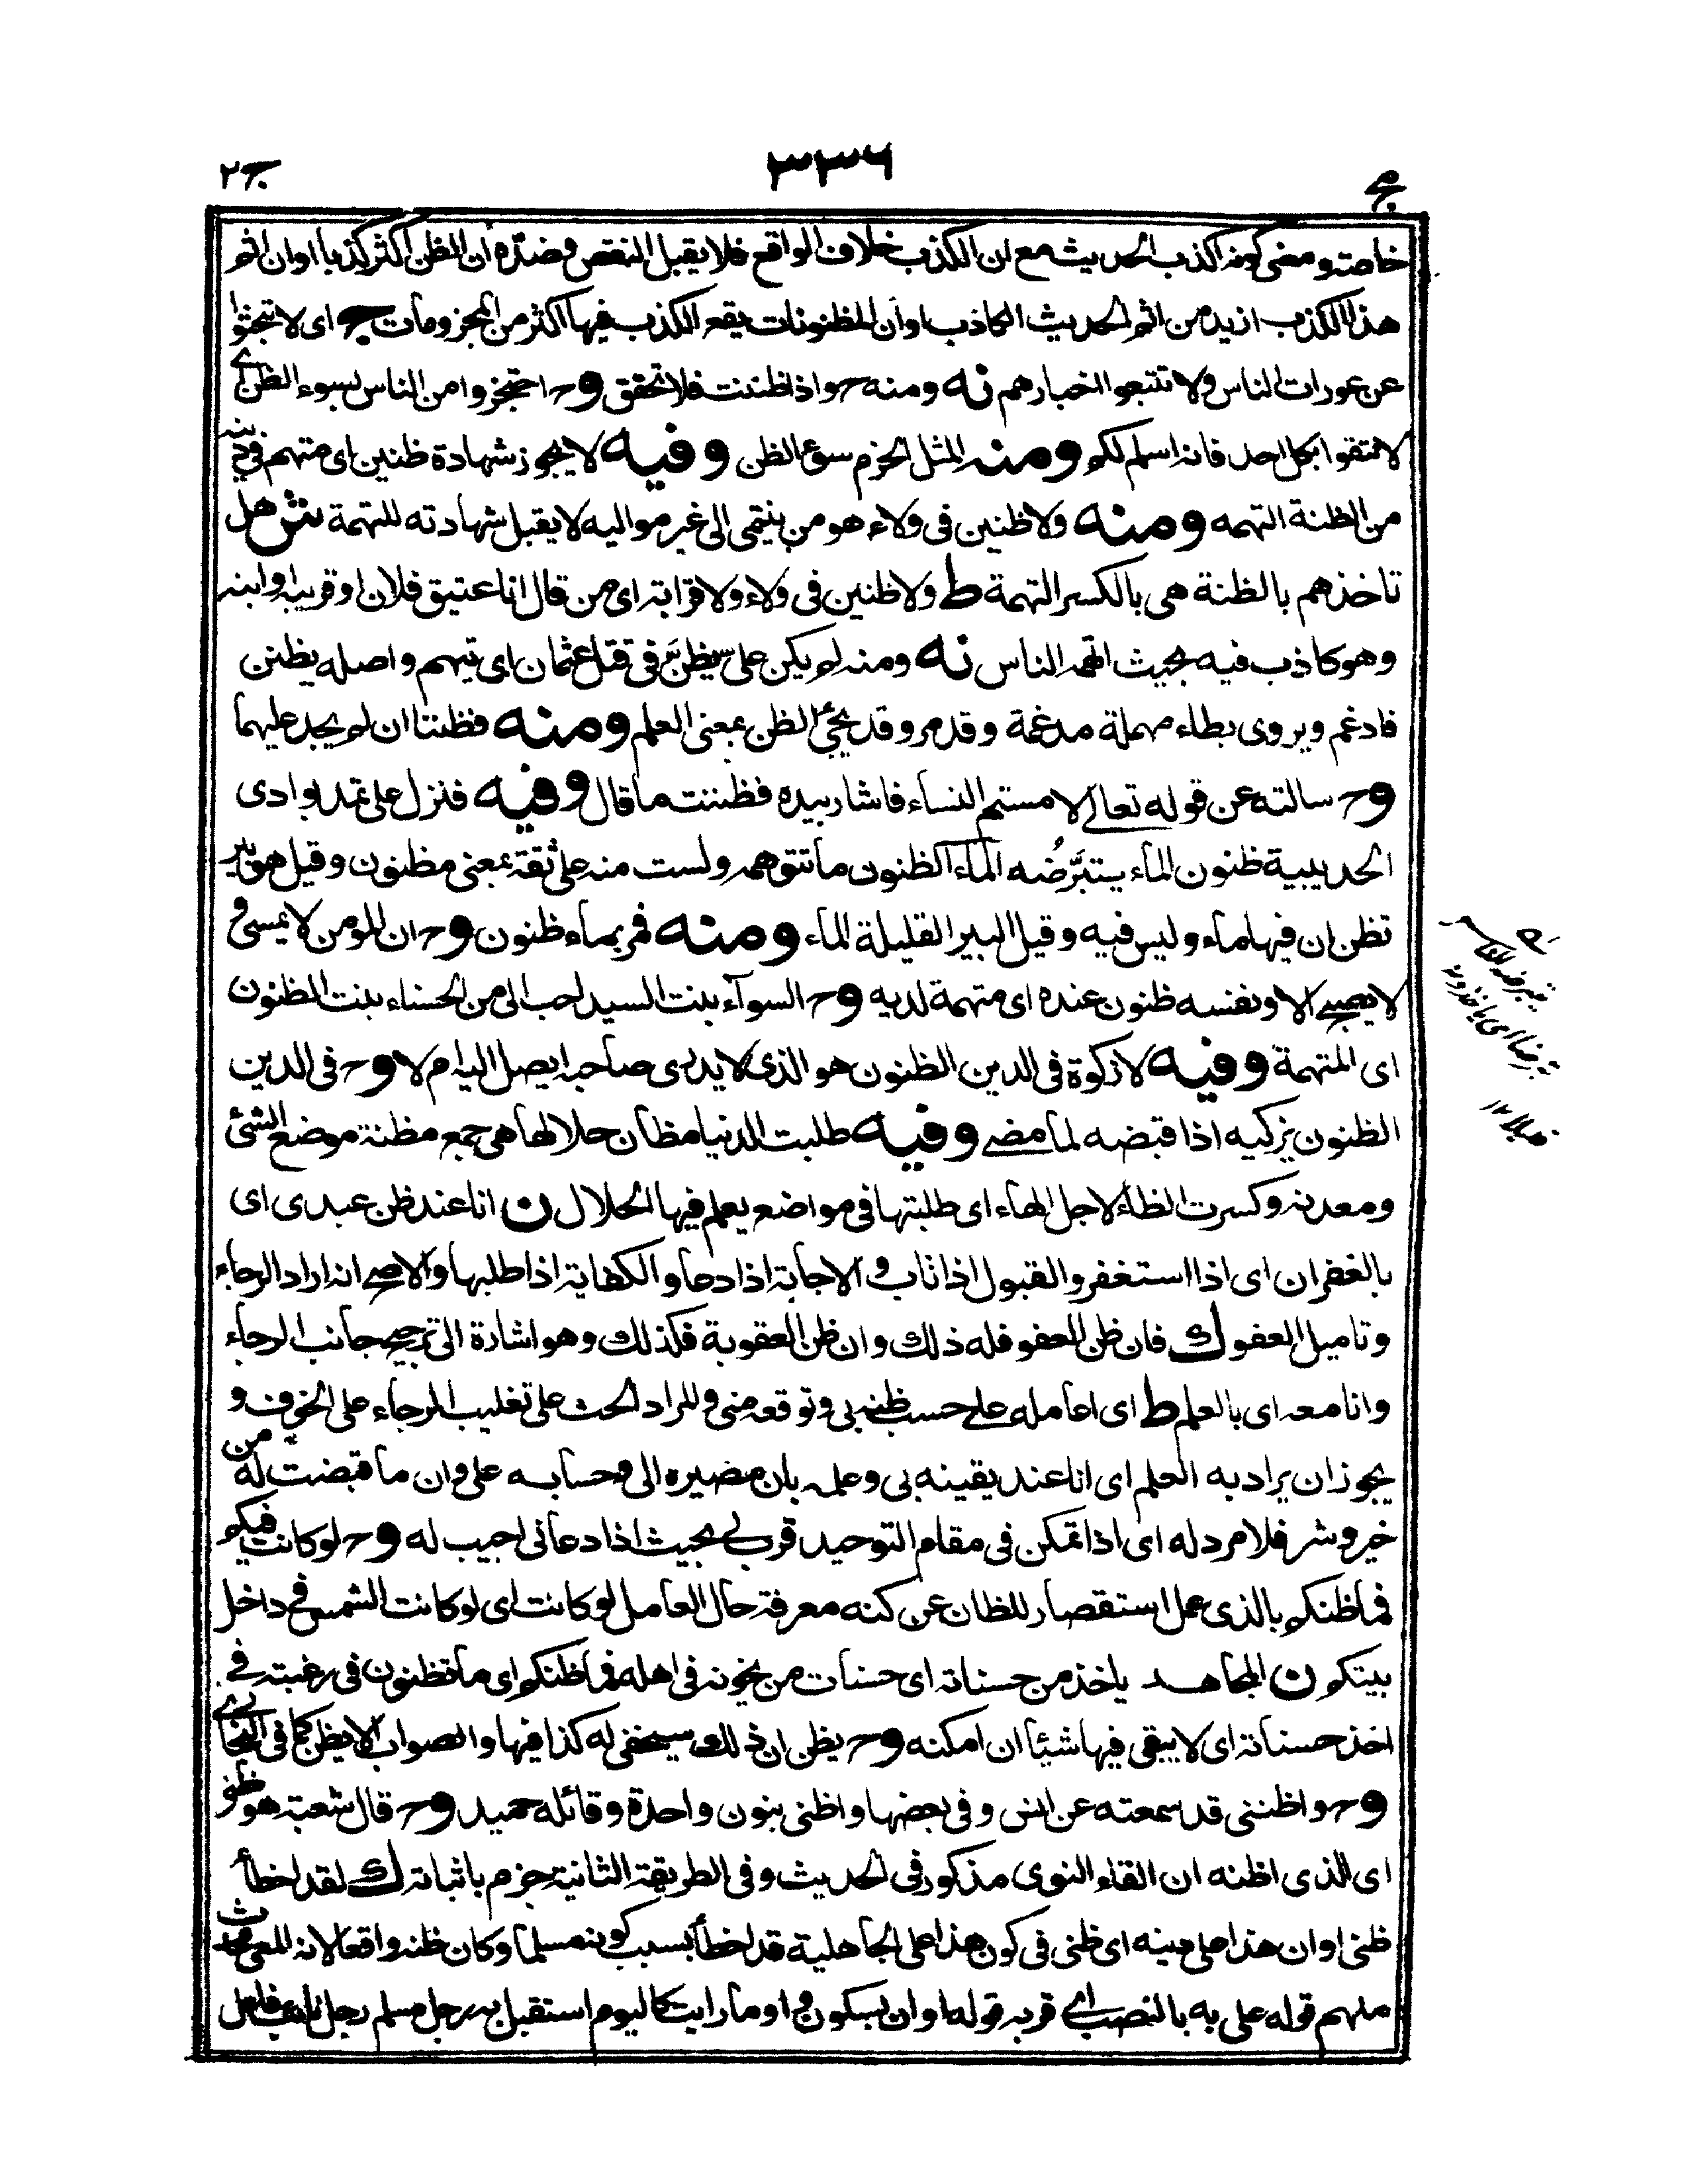 مج
٣٣٦
ج٢
خاصته ومعنى كونه اكذب الحديث مع ان الكذب خلاف الواقع فلا يقبل النقص وضدّه أن الظن اكثر كذبا او ان اثم
هذا الكذب ازيد من اثم الحديث الكاذب او أن المظنونات يقع الكذب فيها اكثر من المجزومات ج اى لا تبحثوا
عن عورات الناس ولا تتبعوا اخبارهم نه ومنه ح واذا ظننت فلا تحقق وح احتجزوا من الناس بسوء الظن اے
لا تثقوا بكل احد فانه اسلم لكم ومنه المثل الحزم سوء الظن وفيه لا يجوز شهادة ظنين اى متهم فى دينه
من الظنة التهمه ومنه ولا ظنين فى ولاء هو من ينتمى الى غير مواليه لا يقبل شهادته للتهمة ش هل
تاخذهم بالظنة هى بالكسر التهمة ط ولا ظنين فى ولاء ولا قرابة اى من قال انا عتيق فلان او قريبه او ابنه
وهو كاذب فيه بحيث اتهمه الناس نه ومنه لم يكن على يظن فى قتل عثمان اى يتهم واصله يظتن
فادغم ويروى بطاء مهملة مدغمة وقد مر وقد يجئ الظن بمعنى العلم ومنه فظننا ان لم يجد عليهما
وح سالته عن قوله تعالى لامستم النساء فاشار بيده فظننت ما قال وفيه فنزل على ثمد بوادى
الحديبية ظنون الماء يتبرّضه الماء الظنون ما تتوهمه ولست منه على ثقة بمعنى مظنون وقيل هو بير
تظن ان فيها ماء وليس فيه وقيل البير القليلة الماء ومنه فمر بماء ظنون وح ان المومن لا يمسى و
لا يصبح الا ونفسه ظنون عنده اى متهمة لديه وح السوآء بنت السيد احب الى من الحسناء بنت الظنون
اى المتهمة وفيه لا زكوة فى الدين الظنون هو الذى لا يدرى صاحبه ايصل اليه ام لا وح فى الدين
الظنون يزكيه اذا قبضه لما مضى وفيه طلبت الدنيا مظان حلالها هى جمع مظنة موضع الشئ
ومعدنه وكسرت الظاء لاجل الهاء اى طلبتها فى مواضع يعلم فيها الحلال ن انا عند ظن عبدى اى
بالغفران اى اذا استغفر والقبول اذا تاب والاجابة اذا دعا والكفاية اذا طلبها والاصح انه اراد الرجاء
وتاميل العفو ك فان ظن العفو فله ذلك وان ظن العقوبة فكذلك وهو اشارة الى ترجيح جانب الرجاء
وانا معه اى بالعلم ط اى اعامله على حسب ظنه بى وتوقعه منى والمراد الحث على تغليب الرجاء على الخوف و
يجوز ان يراد به العلم اى انا عند يقينه بى وعلمه بان مصيره الى وحسابه على وان ما قضيت له من
خير وشر فلا مرد له اى اذا تمكن فى مقام التوحيد قرب بى بحيث اذا دعانى اجيب له وح لو كانت فيكم
فما ظنكم بالذى عمل استقصار للظان عن كنه معرفة حال العامل لو كانت اى لو كانت الشمس فى داخل
بيتكم ن المجاهد ياخذ من حسناته اى حسنات من يخونه فى اهله فما ظنكم اى ما تظنون فى رغبته فى
اخذ حسناته اى لا يبقى فيها شيئا ان امكنه وح يظن ان ذلك سيخفى له كذا فيها والصواب الا يظن كما فى البخارى
وح واظننى قد سمعته عن انس وفى بعضها واظنى بنون واحدة وقائله حميد وح قال شعبة هو ظنى
اى الذى اظنه ان القاء النوى مذكور فى الحديث وفى الطريقة الثانية جزم باثباته ك لقد اخطأ
ظنى او ان هذا على دينه اى ظنى فى كون هذا على الجاهلية قد اخطأ بسبب كونه مسلما وكان ظنه واقعا لانه
ملهم قوله على به بالنصب اى قربه قوله او ان بسكون و او ما رايت كاليوم استقبل به رجل مسلم رجل